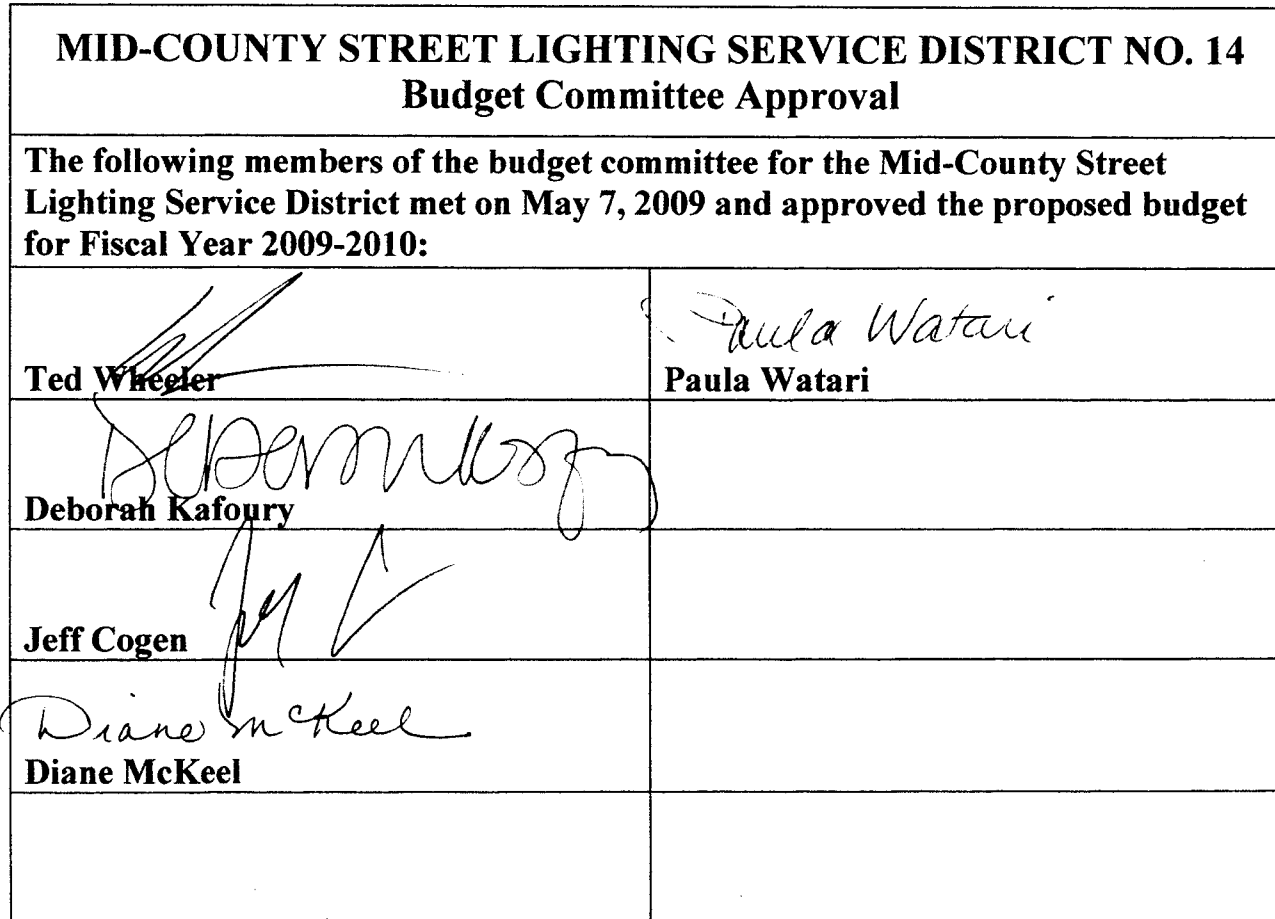 MID-COUNTY STREET LIGHTING SERVICE DISTRICT NO. 14
Budget Committee Approval
The following members of the budget committee for the Mid-County Street
Lighting Service District met on May 7, 2009 and approved the proposed budget
for Fiscal Year 2009-2010:
Ted Wheeler
Paula Watari
Paula Watari
Deborah Kafoury
Jeff Cogen
Diane McKeel
Diane McKeel